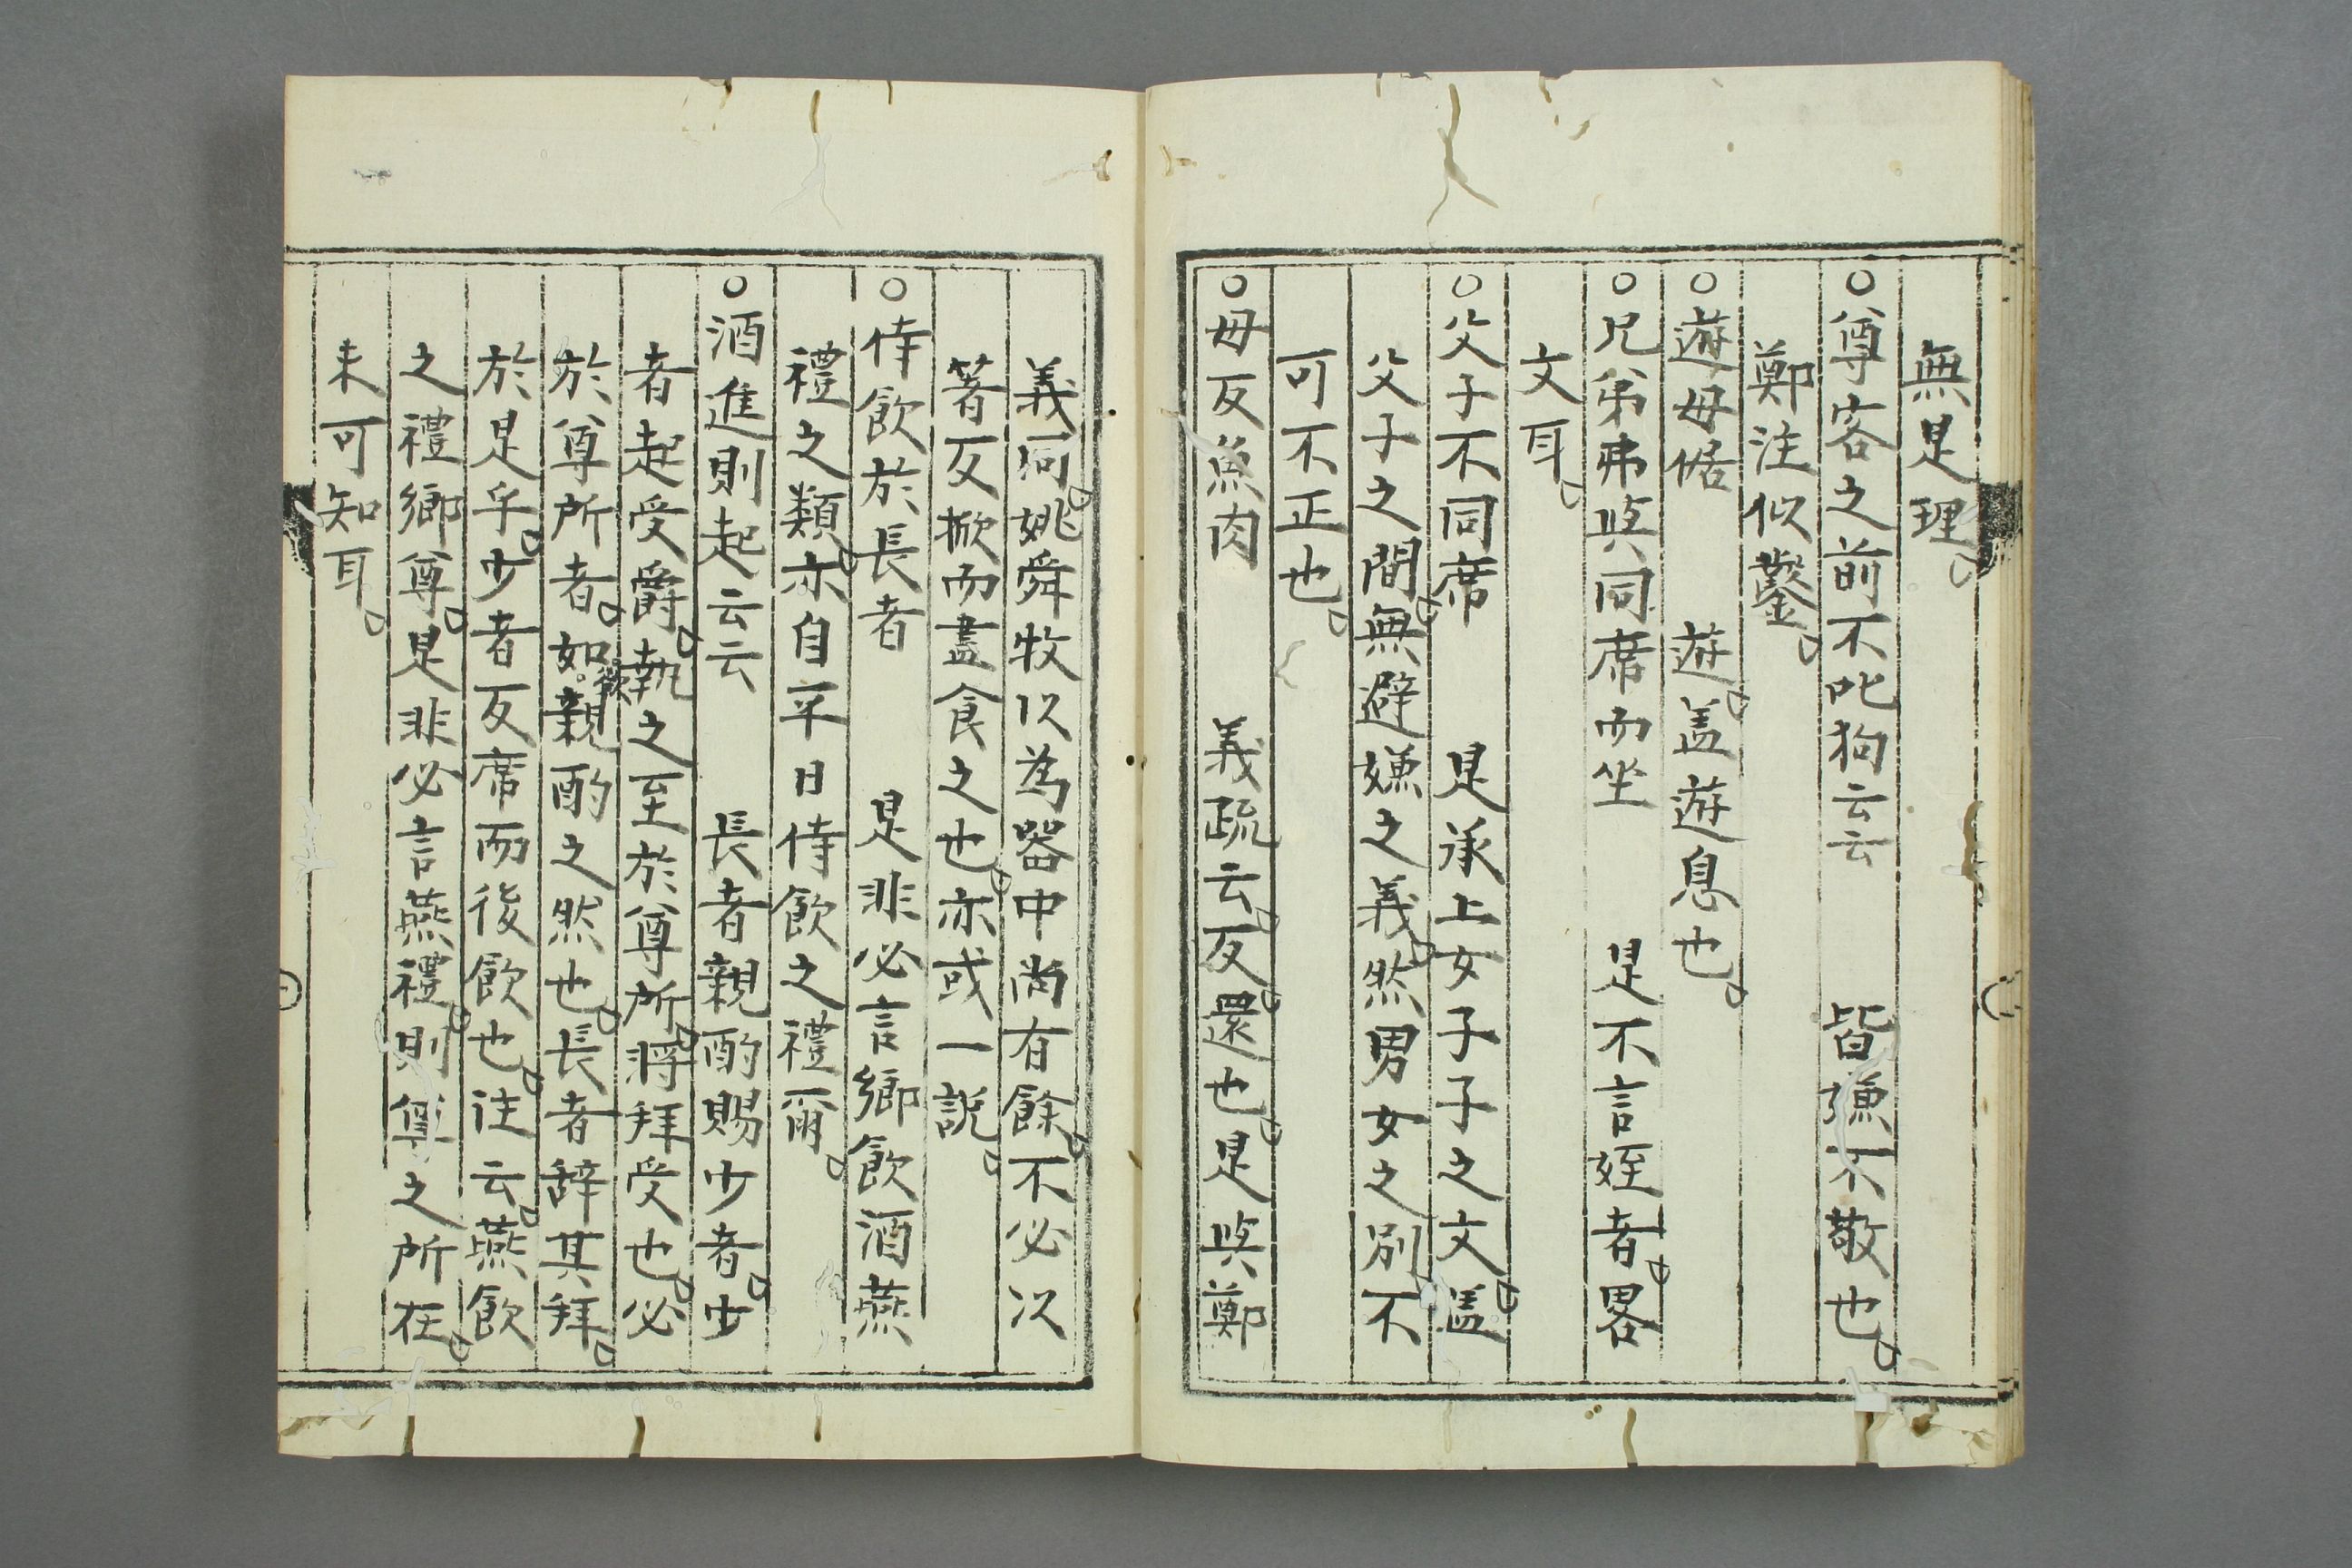 無是理
○尊客之前不叱狗云云 皆嫌不敬也
鄭注似鑿
○遊毋倨 遊盖遊息也
○兄弟弗與同席而坐 是不言姪者畧
文耳
○父子不同席 是承上女子子之文盖
父子之間無避嫌之義然男女之別不
可不正也
○毋反魚肉 義疏云反還也是與鄭
義同姚舜牧以為器中尚有餘不必以
箸反掀而盡食之也亦或一説
○侍飲於長者 是非必言鄉飲酒燕
禮之類亦自平日侍飲之禮爾
○酒進則起云云 長者親酌賜少者少
者起受爵執之至於尊所將拜受也必
於尊所者如親酌之然也長者辞其拜
於是乎少者反席而後飲也注云燕飲
之禮鄉尊是非必言燕禮則尊之所在
未可知耳